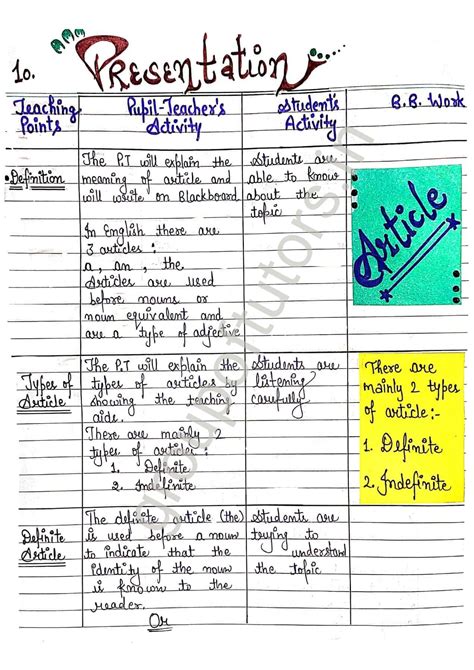 10. Presentation
Teaching Points
Pupil-Teacher's Activity
Student's Activity
B.B. Work
• Definition
The P.T will explain the
meaning of article and
will write on Blackboard
In English there are
3 articles :
a, an, the
Articles are used
before nouns or
noun equivalent and
are a type of adjective
Students are
able to know
about the
topic
Article
Types of
Article
The P.T will explain the
types of articles by
showing the teaching
aids.
There are mainly 2
types of articles :
1. Definite
2. Indefinite
Students are
listening
carefully
There are
mainly 2 types
of article:-
1. Definite
2. Indefinite
Definite
Article
The definite article (the)
is used before a noun
to indicate that the
identity of the noun
is known to the
reader.
Or
Students are
trying to
understand
the topic
groupoftutors.in